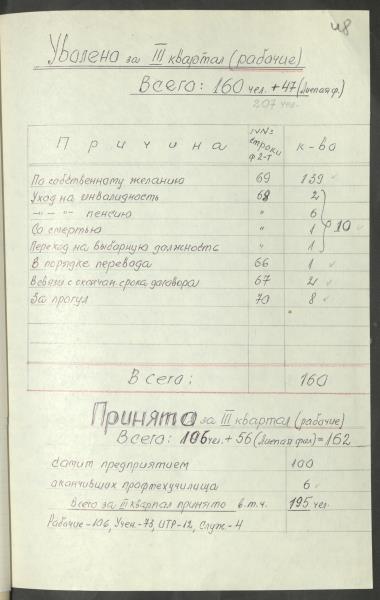 48
Уволено за III квартал (рабочие)
Всего: 160 чел. + 47 (Лиепая ф.)
207 чел.
Причина №№ строки ф 2-Т к-во
По собственному желанию 69 139
Уход на инвалидность 68 2
—"— —"— пенсию " 6 10
Со смертью " 1
Переход на выборную должность " 1
В порядке перевода 66 1
В связи с оконган. срока договора 67 2
За прогул 70 8
Всего: 160
Принято за III квартал (рабочие)
Всего: 106 чел. + 56 (Лиепая фил) = 162
самим предприятием 100
окончивших профтехучилища 6
Всего за III квартал принято в.т.ч. 195 чел.
Рабочие - 106, Учен. - 73, ИТР - 12, Служ - 4